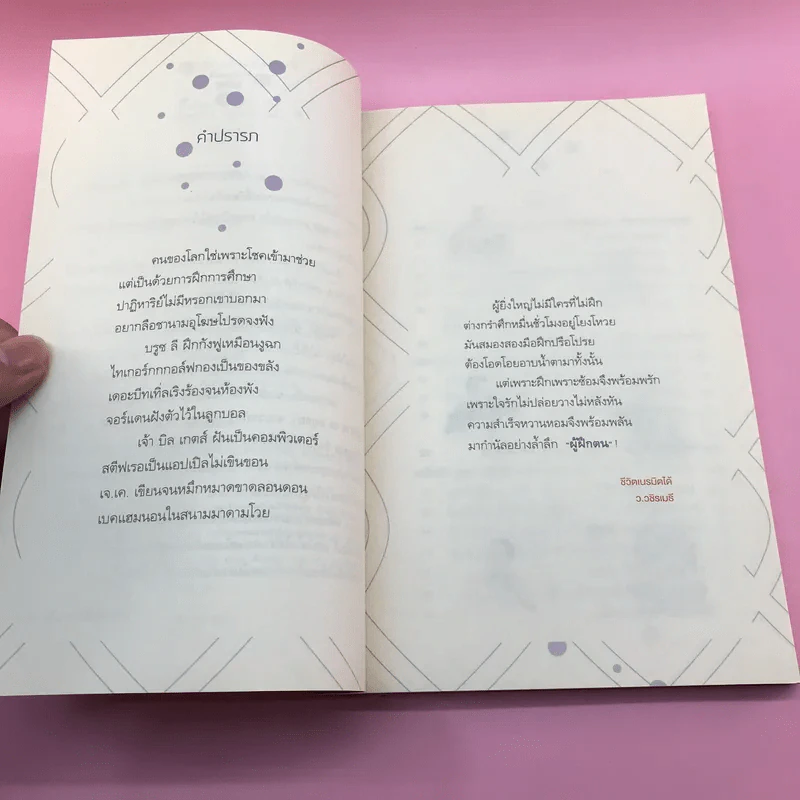 คำปรารภ
คนของโลกใช่เพราะโชคเข้ามาช่วย
แต่เป็นด้วยการฝึกการศึกษา
ปาฏิหาริย์ไม่มีหรอกเขาบอกมา
อยากลือชานามอุโฆษโปรดจงฟัง
บรูซ ลี ฝึกกังฟูเหมือนงูฉก
ไทเกอร์กกกอล์ฟกองเป็นของขลัง
เดอะบีทเทิ่ลเริงร้องจนห้องพัง
จอร์แดนฝังตัวไว้ในลูกบอล
เจ้า บิล เกตส์ ฝันเป็นคอมพิวเตอร์
สตีฟเรอเป็นแอปเปิลไม่เขินขอน
เจ.เค. เขียนจนหมึกหมาดขาดลอนดอน
เบคแฮมนอนในสนามมาดามโวย
ผู้ยิ่งใหญ่ไม่มีใครที่ไม่ฝึก
ต่างกรำศึกหมื่นชั่วโมงอยู่โยงโหวย
มันสมองสองมือฝึกปรือโปรย
ต้องโอดโอยอาบน้ำตามาทั้งนั้น
แต่เพราะฝึกเพราะซ้อมจึงพร้อมพรัก
เพราะใจรักไม่ปล่อยวางไม่หลังหัน
ความสำเร็จหวานหอมจึงพร้อมพลัน
มากำนัลอย่างล้ำลึก "ผู้ฝึกตน" !
ชีวิตเนรมิตได้
ว.วชิรเมธี